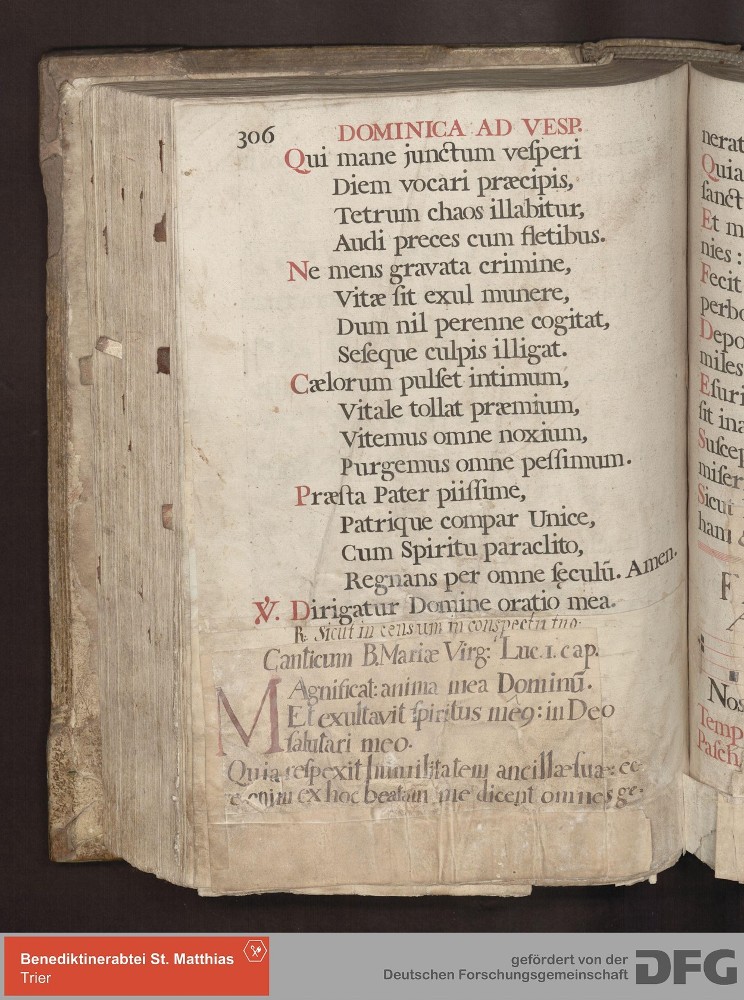 306 DOMINICA AD VESP.
Qui mane junctum veſperi
Diem vocari præcipis,
Tetrum chaos illabitur,
Audi preces cum fletibus.
Ne mens gravata crimine,
Vitæ ſit exul munere,
Dum nil perenne cogitat,
Seſeque culpis illigat.
Cælorum pulſet intimum,
Vitale tollat præmium,
Vitemus omne noxium,
Purgemus omne peſſimum.
Præſta Pater piiſſime,
Patrique compar Unice,
Cum Spiritu paraclito,
Regnans per omne ſeculū. Amen.
℣. Dirigatur Domine oratio mea.
R. Sicut incensum in conspectu tuo.
Canticum B. Mariæ Virg: Luc. 1. cap.
MAgnificat: anima mea Dominū.
Et exultavit ſpiritus meꝯ: in Deo
ſalutari meo.
Quia reſpexit humilitatem ancillæ ſuæ: ec-
enim ex hoc beatam me dicent omnes ge-
nerat
Quia
ſanct
Et m
nies:
Fecit
perbo
Depo
miles
Eſuri
ſit ina
Suſcep
miſer
Sicut
ham
Nos
Temp
Paſch
Benediktinerabtei St. Matthias
Trier
gefördert von der
Deutschen Forschungsgemeinschaft DFG